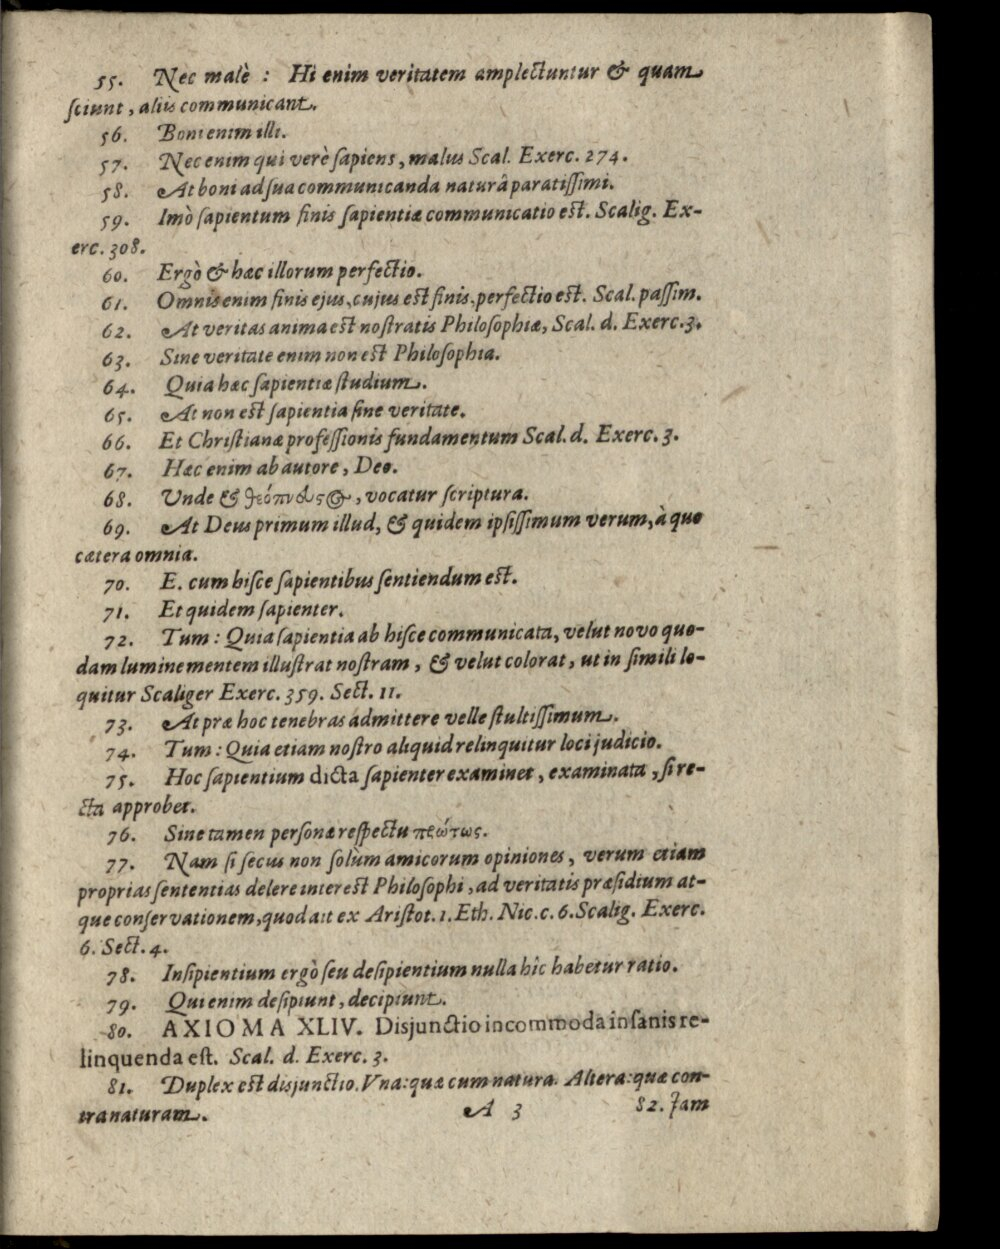 55. Nec malè : Hi enim veritatem amplectuntur & quam
sciunt, aliis communicant.
56. Boni enim illi.
57. Nec enim qui verè sapiens, malus Scal. Exerc. 274.
58. At boni ad sua communicanda naturâ paratissimi.
59. Imò sapientum finis sapientiæ communicatio est. Scalig. Ex-
erc. 308.
60. Ergò & hæc illorum perfectio.
61. Omnis enim finis ejus, cujus est finis, perfectio est. Scal. passim.
62. At veritas anima est nostratis Philosophiæ, Scal. d. Exerc. 3.
63. Sine veritate enim non est Philosophia.
64. Quia hæc sapientiæ studium.
65. At non est sapientia sine veritate.
66. Et Christianæ professionis fundamentum Scal. d. Exerc. 3.
67. Hæc enim ab autore, Deo.
68. Unde & θεόπνευστος, vocatur scriptura.
69. At Deus primum illud, & quidem ipsissimum verum, à quo
cætera omnia.
70. E. cum hisce sapientibus sentiendum est.
71. Et quidem sapienter.
72. Tum : Quia sapientia ab hisce communicata, velut novo quo-
dam lumine mentem illustrat nostram, & velut colorat, ut in simili lo-
quitur Scaliger Exerc. 359. Sect. 11.
73. At præ hoc tenebras admittere velle stultissimum.
74. Tum : Quia etiam nostro aliquid relinquitur loci judicio.
75. Hoc sapientium dicta sapienter examinet, examinata, si re-
cta approbet.
76. Sine tamen personæ respectu πρώτως.
77. Nam si secus non solùm amicorum opiniones, verum etiam
proprias sententias delere interest Philosophi, ad veritatis præsidium at-
que conservationem, quod ait ex Aristot. 1. Eth. Nic. c. 6. Scalig. Exerc.
6. Sect. 4.
78. Insipientium ergò seu desipientium nulla hîc habetur ratio.
79. Qui enim desipiunt, decipiunt.
80. AXIOMA XLIV. Disjunctio incommoda insanis re-
linquenda est. Scal. d. Exerc. 3.
81. Duplex est disjunctio. Vna: quæ cum natura. Altera: quæ con-
tra naturam.
A 3
82. Jam